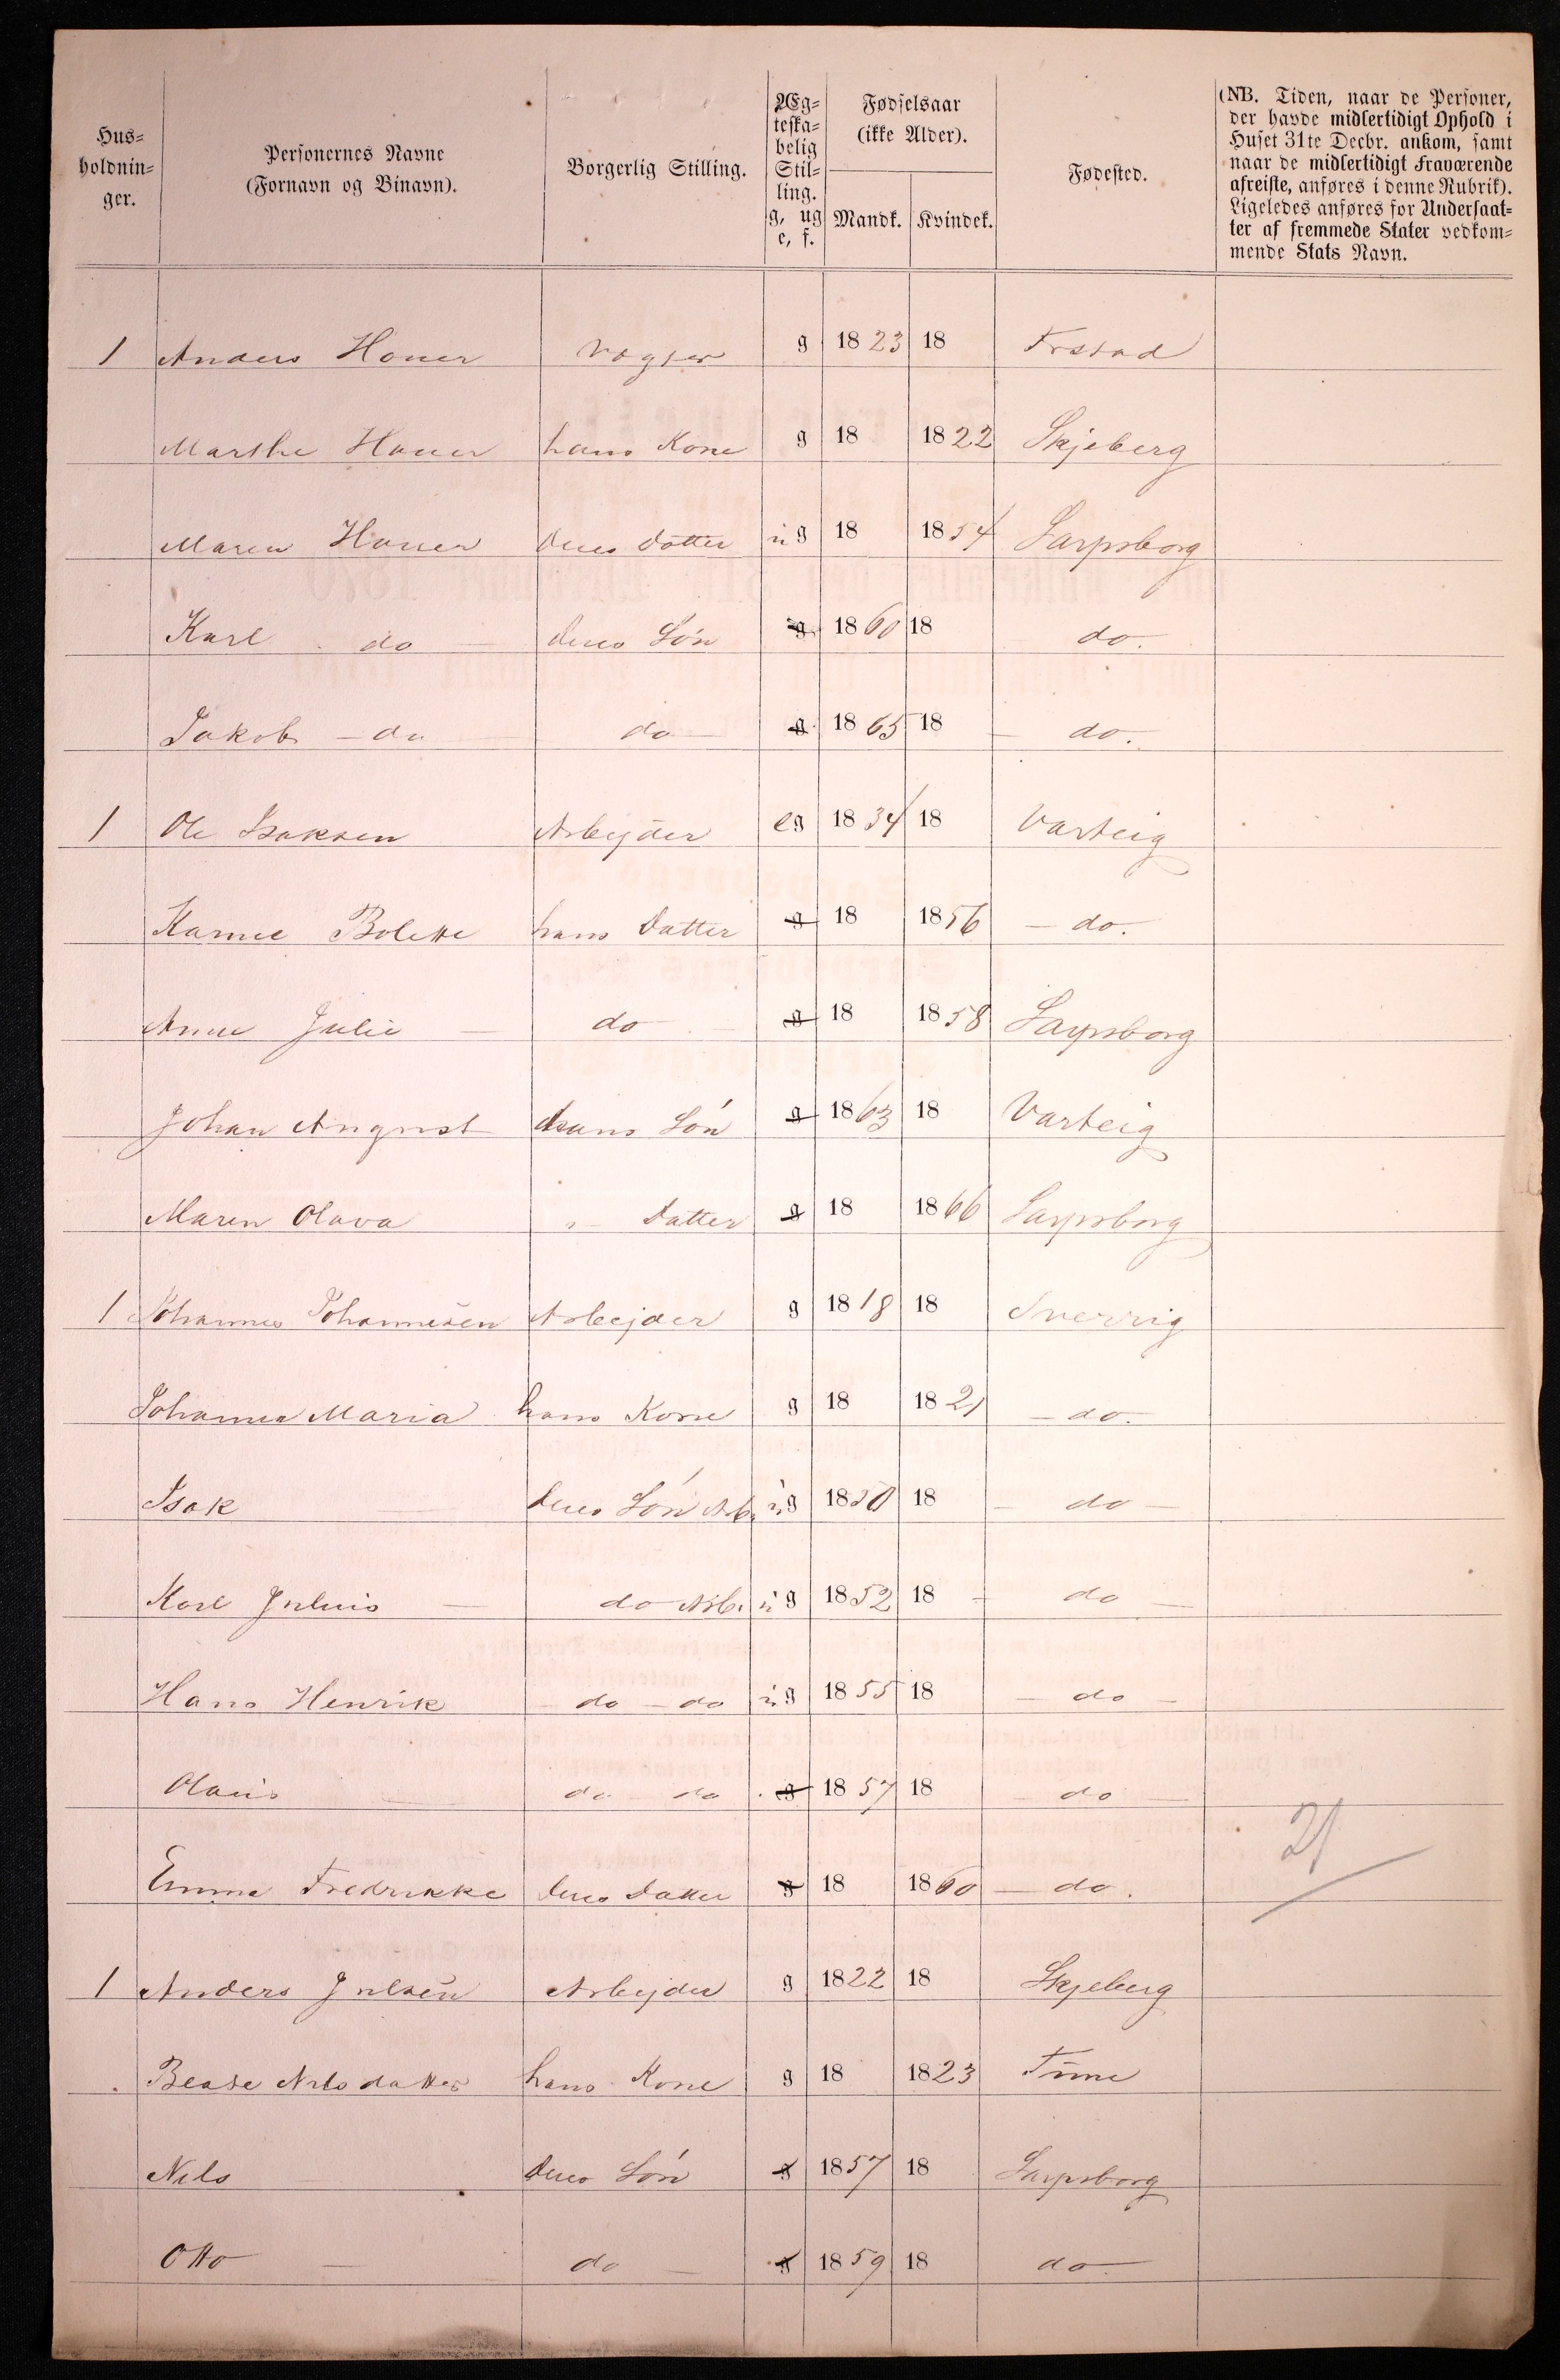 Hus=
holdnin=
ger.
Personernes Navne
(Fornavn og Binavn).
Borgerlig Stilling.
Æg=
teska=
belig
Stil=
ling.
g, ug
e, f.
Fødselsaar
(ikke Alder).
Mandk. Kvindek.
Fødested.
(NB. Tiden, naar de Personer,
der havde midlertidigt Ophold i
Huset 31te Decbr. ankom, samt
naar de midlertidigt Fraværende
afreiste, anføres i denne Rubrik).
Ligeledes anføres for Undersaat=
ter af fremmede Stater vedkom=
mende Stats Navn.
1 Anders g 1823 18
Marthe hans Kone g 18 1822 Skjeberg
Maren deres Datter ug 18 1854 Sarpsborg
Karl do deres Søn g 1860 18 do.
Jakob - do do g 1865 18 - do.
1 Ole Isaksen Arbejder eg 1834 18 Varteig
Bolette hans Datter g 18 1856 - do.
Anne Julie - do - g 18 1858 Sarpsborg
Johan August hans Søn g 1863 18 Varteig
Maren Olava " Datter g 18 1866 Sarpsborg
1 Johannes Johannesen Arbejder g 1818 18 Sverrig
Johanna Maria hans Kone g 18 1821 - do.
Isak - deres Søn Arb. ug 1850 18 - do -
Karl Julius - do Arb. ug 1852 18 - do -
Hans Henrik - do - do ug 1855 18 - do -
Olaus - do - do g 1857 18 - do -
Emma Fredrikke deres Datter g 18 1860 - do.
21
1 Anders Julsen Arbejder g 1822 18 Skjeberg
Beate Nilsdatter hans Kone g 18 1823 Tune
Nils deres Søn g 1857 18 Sarpsborg
Otto - do - g 1859 18 do -